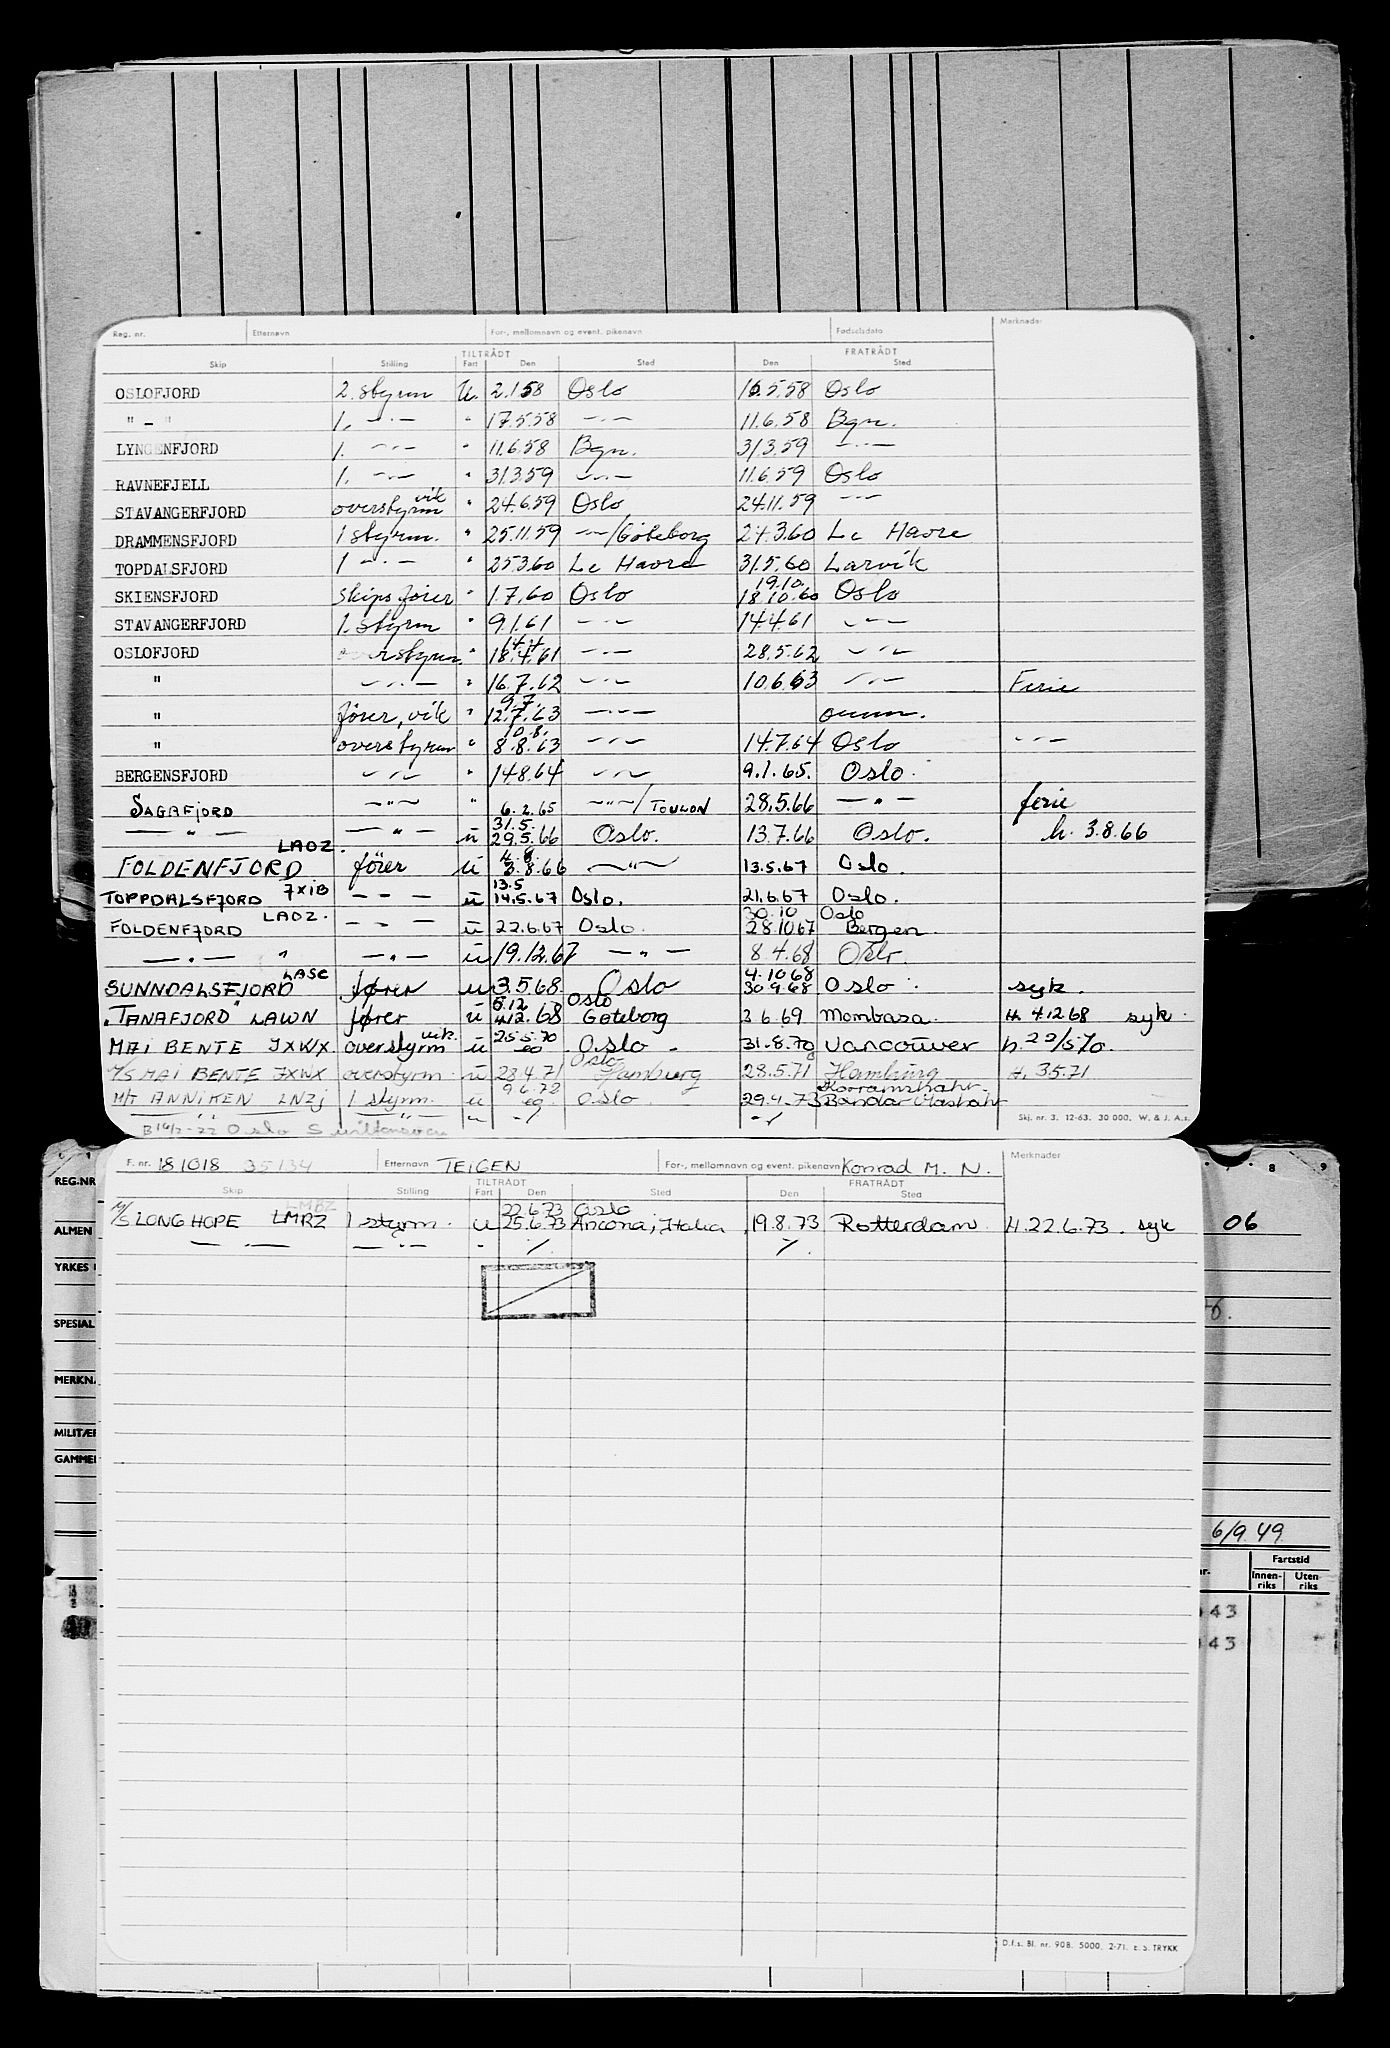 Reg. nr. Etternavn For-, mellomnavn og event. pikenavn Fødselsdato Merknader
TILTRÅDT FRATRÅDT
Skip Stilling Fart Den Sted Den Sted
OSLOFJORD 2. styrm U. 2.1.58 Oslo 16.5.58 Oslo
" - " 1. -"- " 17.5.58 -"- 11.6.58 Bgn.
LYNGENFJORD 1. -"- " 11.6.58 Bgn. 31.3.59 -"-
RAVNEFJELL 1. -"- " 31.3.59 -"- 11.6.59 Oslo
vik
STAVANGERFJORD overstyrm " 24.6.59 Oslo 24.11.59 -"-
DRAMMENSFJORD 1 styrm. " 25.11.59 -"-/Göteborg 24.3.60 Le Havre
TOPDALSFJORD 1 -"- " 25.3.60 Le Havre 31.5.60 Larvik
19.10.
SKIENSFJORD skipsfører " 1.7.60 Oslo 18.10.60 Oslo
STAVANGERFJORD 1. styrm " 9.1.61 -"- 14.4.61 -"-
14.4
OSLOFJORD overstyrm " 18.4.61 -"- 28.5.62 -"-
" -"- " 16.7.62 -"- 10.6.63 -"- Ferie
9.7.
" fører, vik " 12.7.63 -"-
10.8.
" overstyrm " 8.8.63 -"- 14.7.64 Oslo -"-
BERGENSFJORD -"- " 14.8.64 -"- 9.1.65. Oslo.
SAGAFJORD -"- " 6.2.65 -"-/TOULON 28.5.66 -"- ferie
31.5.
-"- -"- u 29.5.66 Oslo. 13.7.66 Oslo. h. 3.8.66
LAOZ. 4.8.
FOLDENFJORD fører u 3.8.66 -"- 13.5.67 Oslo.
JXIB 13.5
TOPPDALSFJORD -"- u 14.5.67 Oslo. 21.6.67 Oslo.
LAOZ. 30.10 Oslo
FOLDENFJORD -"- u 22.6.67 Oslo. 28.10.67 Bergen.
-"- " -"- u 19.12.67 -"- 8.4.68 Oslo.
LASC 4.10.68
SUNNDALSFJORD fører u 3.5.68. Oslo 30.9.68 Oslo. syk.
5.12 Oslo
"TANAFJORD" LAWN fører u 4.12.68 Göteborg 3.6.69 Mombasa. H. 4.12.68 syk.
vik. 25.5.70
MAI BENTE JXWX. overstyrm u Oslo. 31.8.70 Vancouver h. 25/5.70.
Oslo
M/S MAI BENTE JXWX overstyrm. u 28.4.71 Hamburg 28.5.71 Hamburg H. 3.5.71
9.6.72 Khorramshahr
M/T ANNIKEN LNZJ 1 styrm. u Oslo. 29.4.73 Bandar Mashahr
-"- -"- " -/- -/- Skj. nr. 3. 12-63. 30 000. W. & J. A.s.
Oslo
F. nr. 181018 35134 Etternavn TEIGEN For-, mellomnavn og event. pikenavn Konrad M. N. Merknader
TILTRÅDT FRATRÅDT
Skip Stilling Fart Den Sted Den Sted
LMRZ 22.6.73 Oslo
M/S LONG HOPE LMRZ 1 styrm. u 25.6.73 Ancona, Italia 19.8.73 Rotterdam. H. 22.6.73. syk
-"- -"- " -/- -/-
D.f.s. Bl. nr. 90B. 5000. 2-71. E. S. TRYKK
REG.NR
ALMEN
YRKES
SPESIAL
MERKNA
MILITÆR
GAMMEL
8 9
06
6/9 49
Fartstid
Innenriks Utenriks
43
43